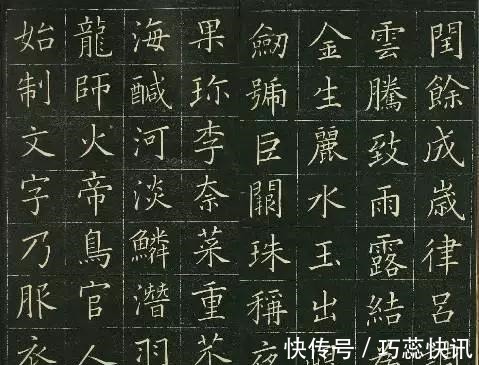 閏餘成歳律呂
雲騰致雨露結
金生麗水玉出
劒號巨闕珠稱夜
果珎李奈菜重芥
海鹹河淡鱗潛羽
龍師火帝鳥官人
始制文字乃服衣
快传号／巧蕊快讯